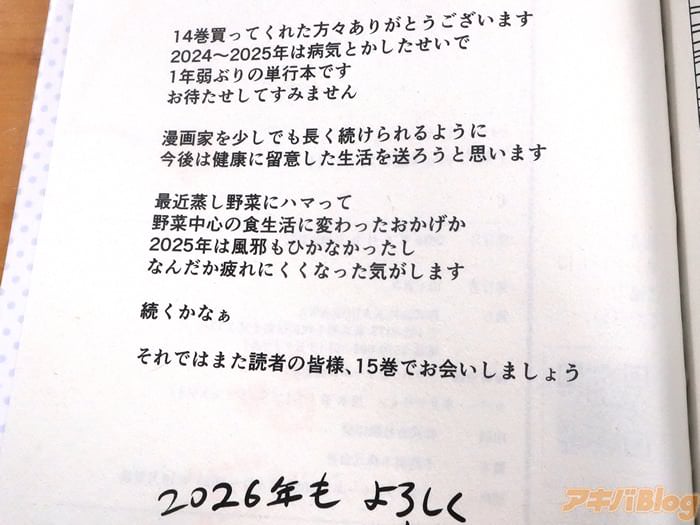 14巻買ってくれた方々ありがとうございます
2024〜2025年は病気とかしたせいで
1年弱ぶりの単行本です
お待たせしてすみません
漫画家を少しでも長く続けられるように
今後は健康に留意した生活を送ろうと思います
最近蒸し野菜にハマって
野菜中心の食生活に変わったおかげか
2025年は風邪もひかなかったし
なんだか疲れにくくなった気がします
続くかなぁ
それではまた読者の皆様、15巻でお会いしましょう
2026年も よろしく
アキバBlog